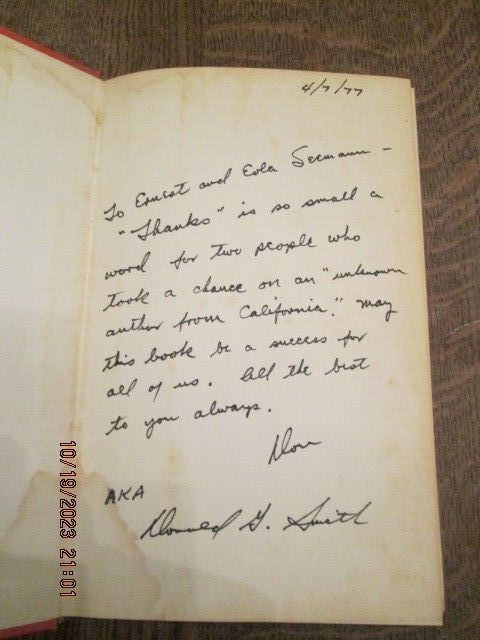 4/7/77
To Ernest and Eola Seemann —
"Thanks" is so small a
word for two people who
took a chance on an "unknown
author from California." May
this book be a success for
all of us. All the best
to you always.
Don
AKA
Donald G. Smith
10/19/2023 21:01